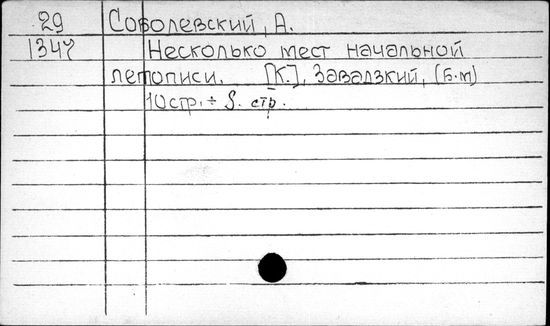 29 Соболевский, А.
1347 Несколько мест начальной
летописи. [К.], Завадзкий, (б.м)
10стр. ÷ 8. стр.